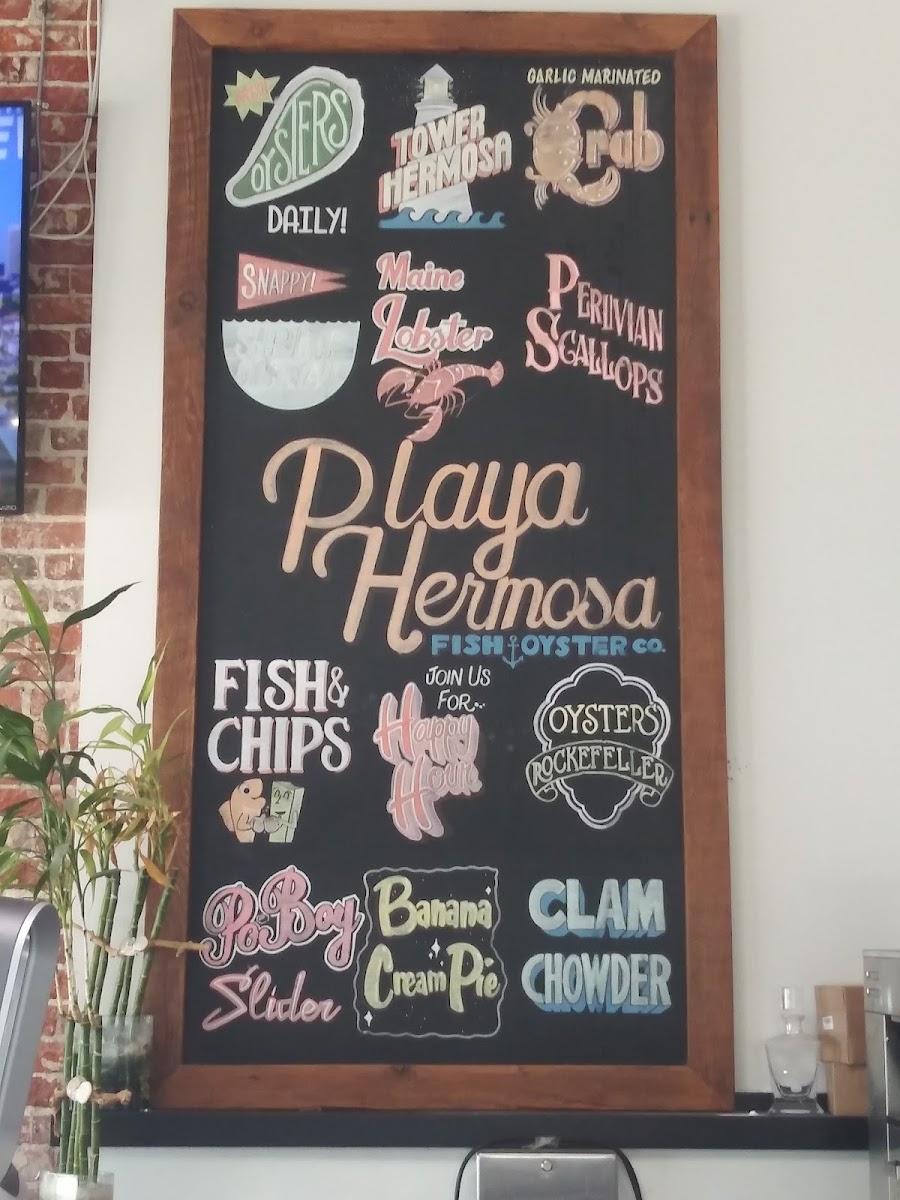 OYSTERS
DAILY!
TOWER
HERMOSA
GARLIC MARINATED
Crab
SNAPPY!
Maine
Lobster
PERUVIAN
SCALLOPS
Playa
Hermosa
FISH OYSTER CO.
FISH &
CHIPS
JOIN US
FOR...
Happy
Hour
OYSTERS
ROCKEFELLER
PoBoy
Slider
Banana
Cream Pie
CLAM
CHOWDER